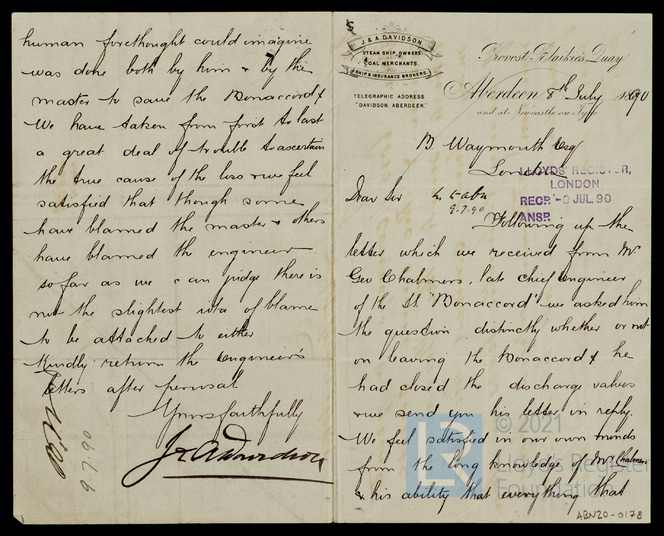 J & A. DAVIDSON
STEAM SHIP OWNERS
COAL MERCHANTS.
SHIP & INSURANCE BROKERS.
TELEGRAPHIC ADDRESS
"DAVIDSON ABERDEEN."
Provost Blaikies Quay
Aberdeen 8th July 1890
and at Newcastle on Tyne
B Waymouth Esq
London
LLOYDS REGISTER,
LONDON
RECD -9 JUL.90
ANSD
Dear Sir
9.7.90
Following up the
letter which we received from Mr
Geo Chalmers, late chief Engineer
of the SS "Bonaccord" we asked him
the question distinctly whether or not
on leaving the Bonaccord & he
had closed the discharge valves
& we send you his letter in reply.
We feel satisfied in our own minds
from the long knowledge of Mr Chalmers
& his ability that everything that
ABN20-0178
human forethought could imagine
was done both by him & by the
master to save the Bonaccord &
We have taken from first to last
a great deal of trouble to ascertain
the true cause of the loss & we feel
satisfied that though some
have blamed the master & others
have blamed the engineer
so far as we can judge there is
not the slightest idea of blame
to be attached to either
Kindly return the Engineer's
letters after perusal
Yours faithfully
J & A Davidson
9.7.90
© 2021
Lloyd's Register
Foundation